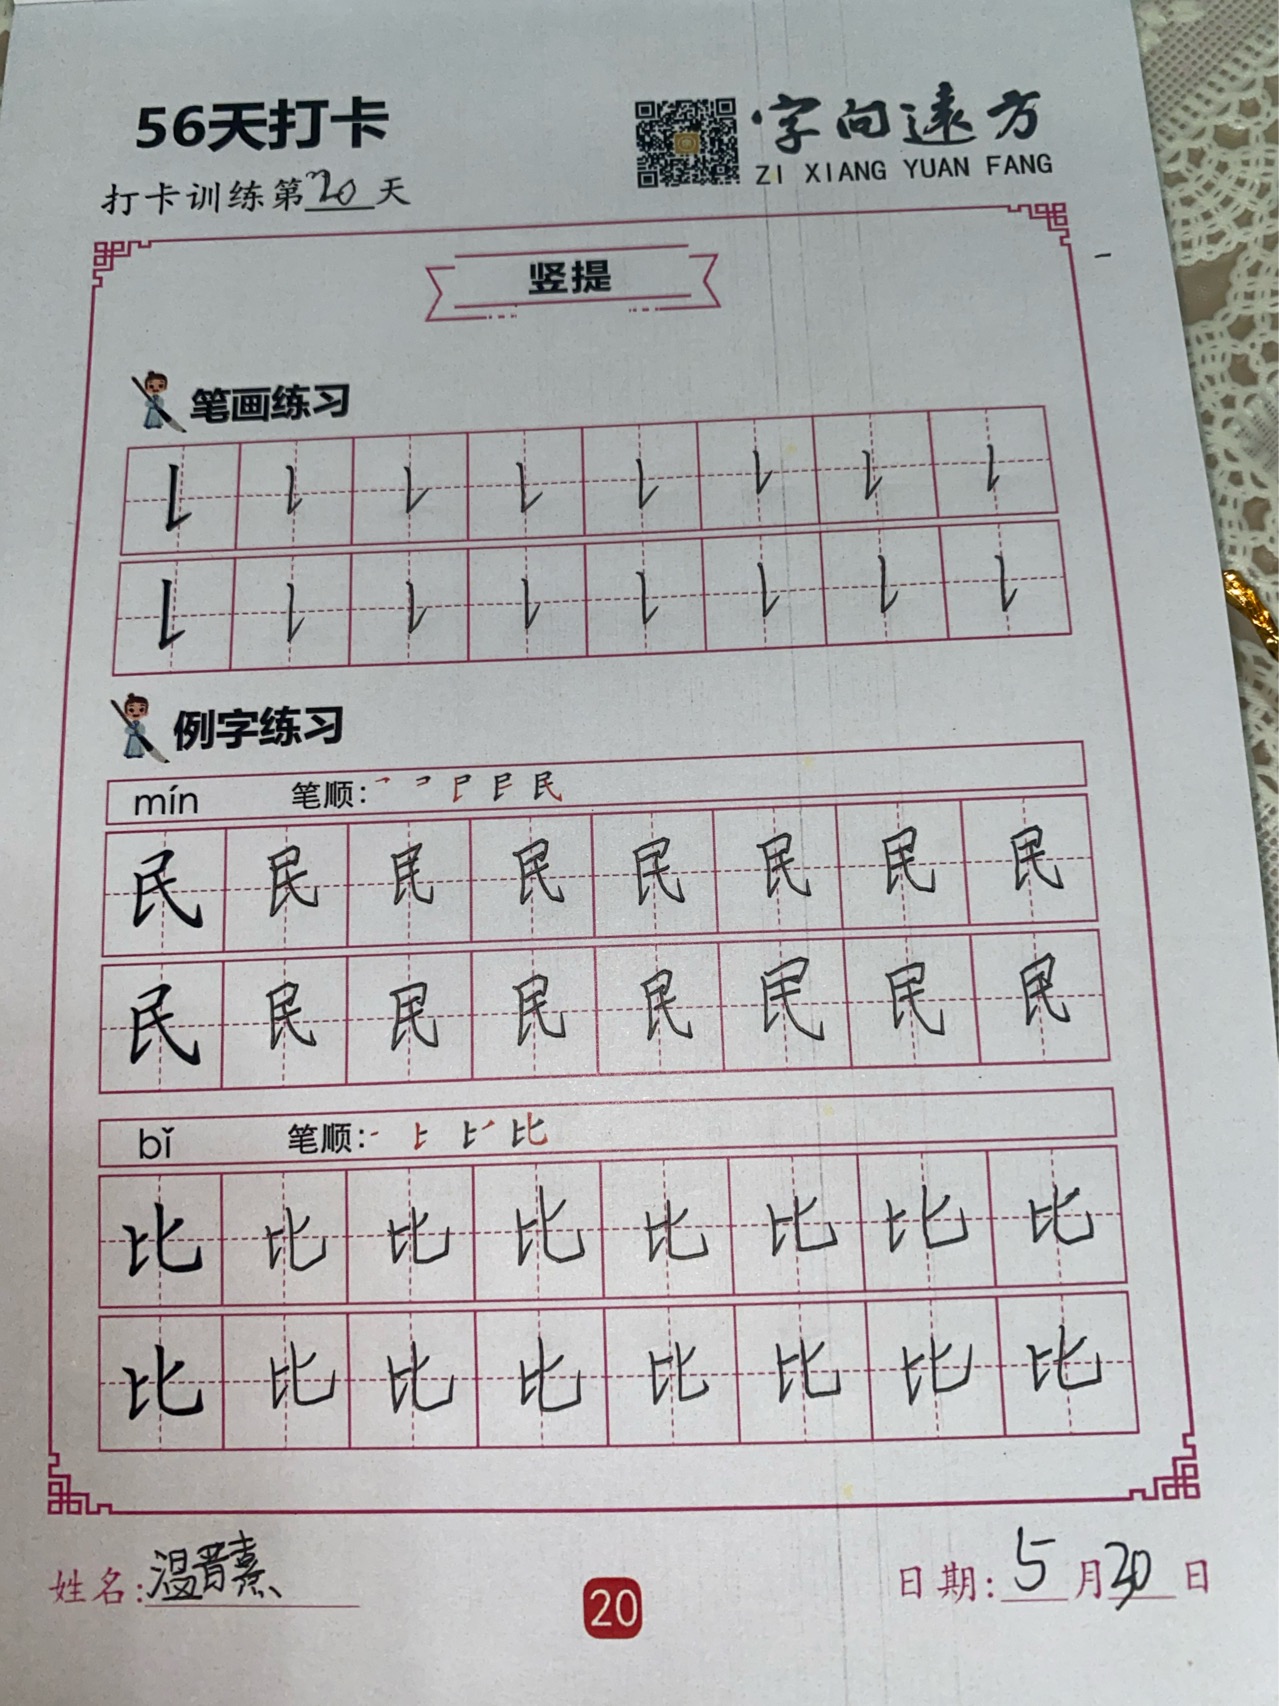 56天打卡
字向远方
ZI XIANG YUAN FANG
打卡训练第20天
竖提
笔画练习
例字练习
mín 笔顺:
民 民 民 民 民 民 民 民
民 民 民 民 民 民 民 民
bǐ 笔顺:
比 比 比 比 比 比 比 比
比 比 比 比 比 比 比 比
姓名:温晋熹
20
日期:5月20日